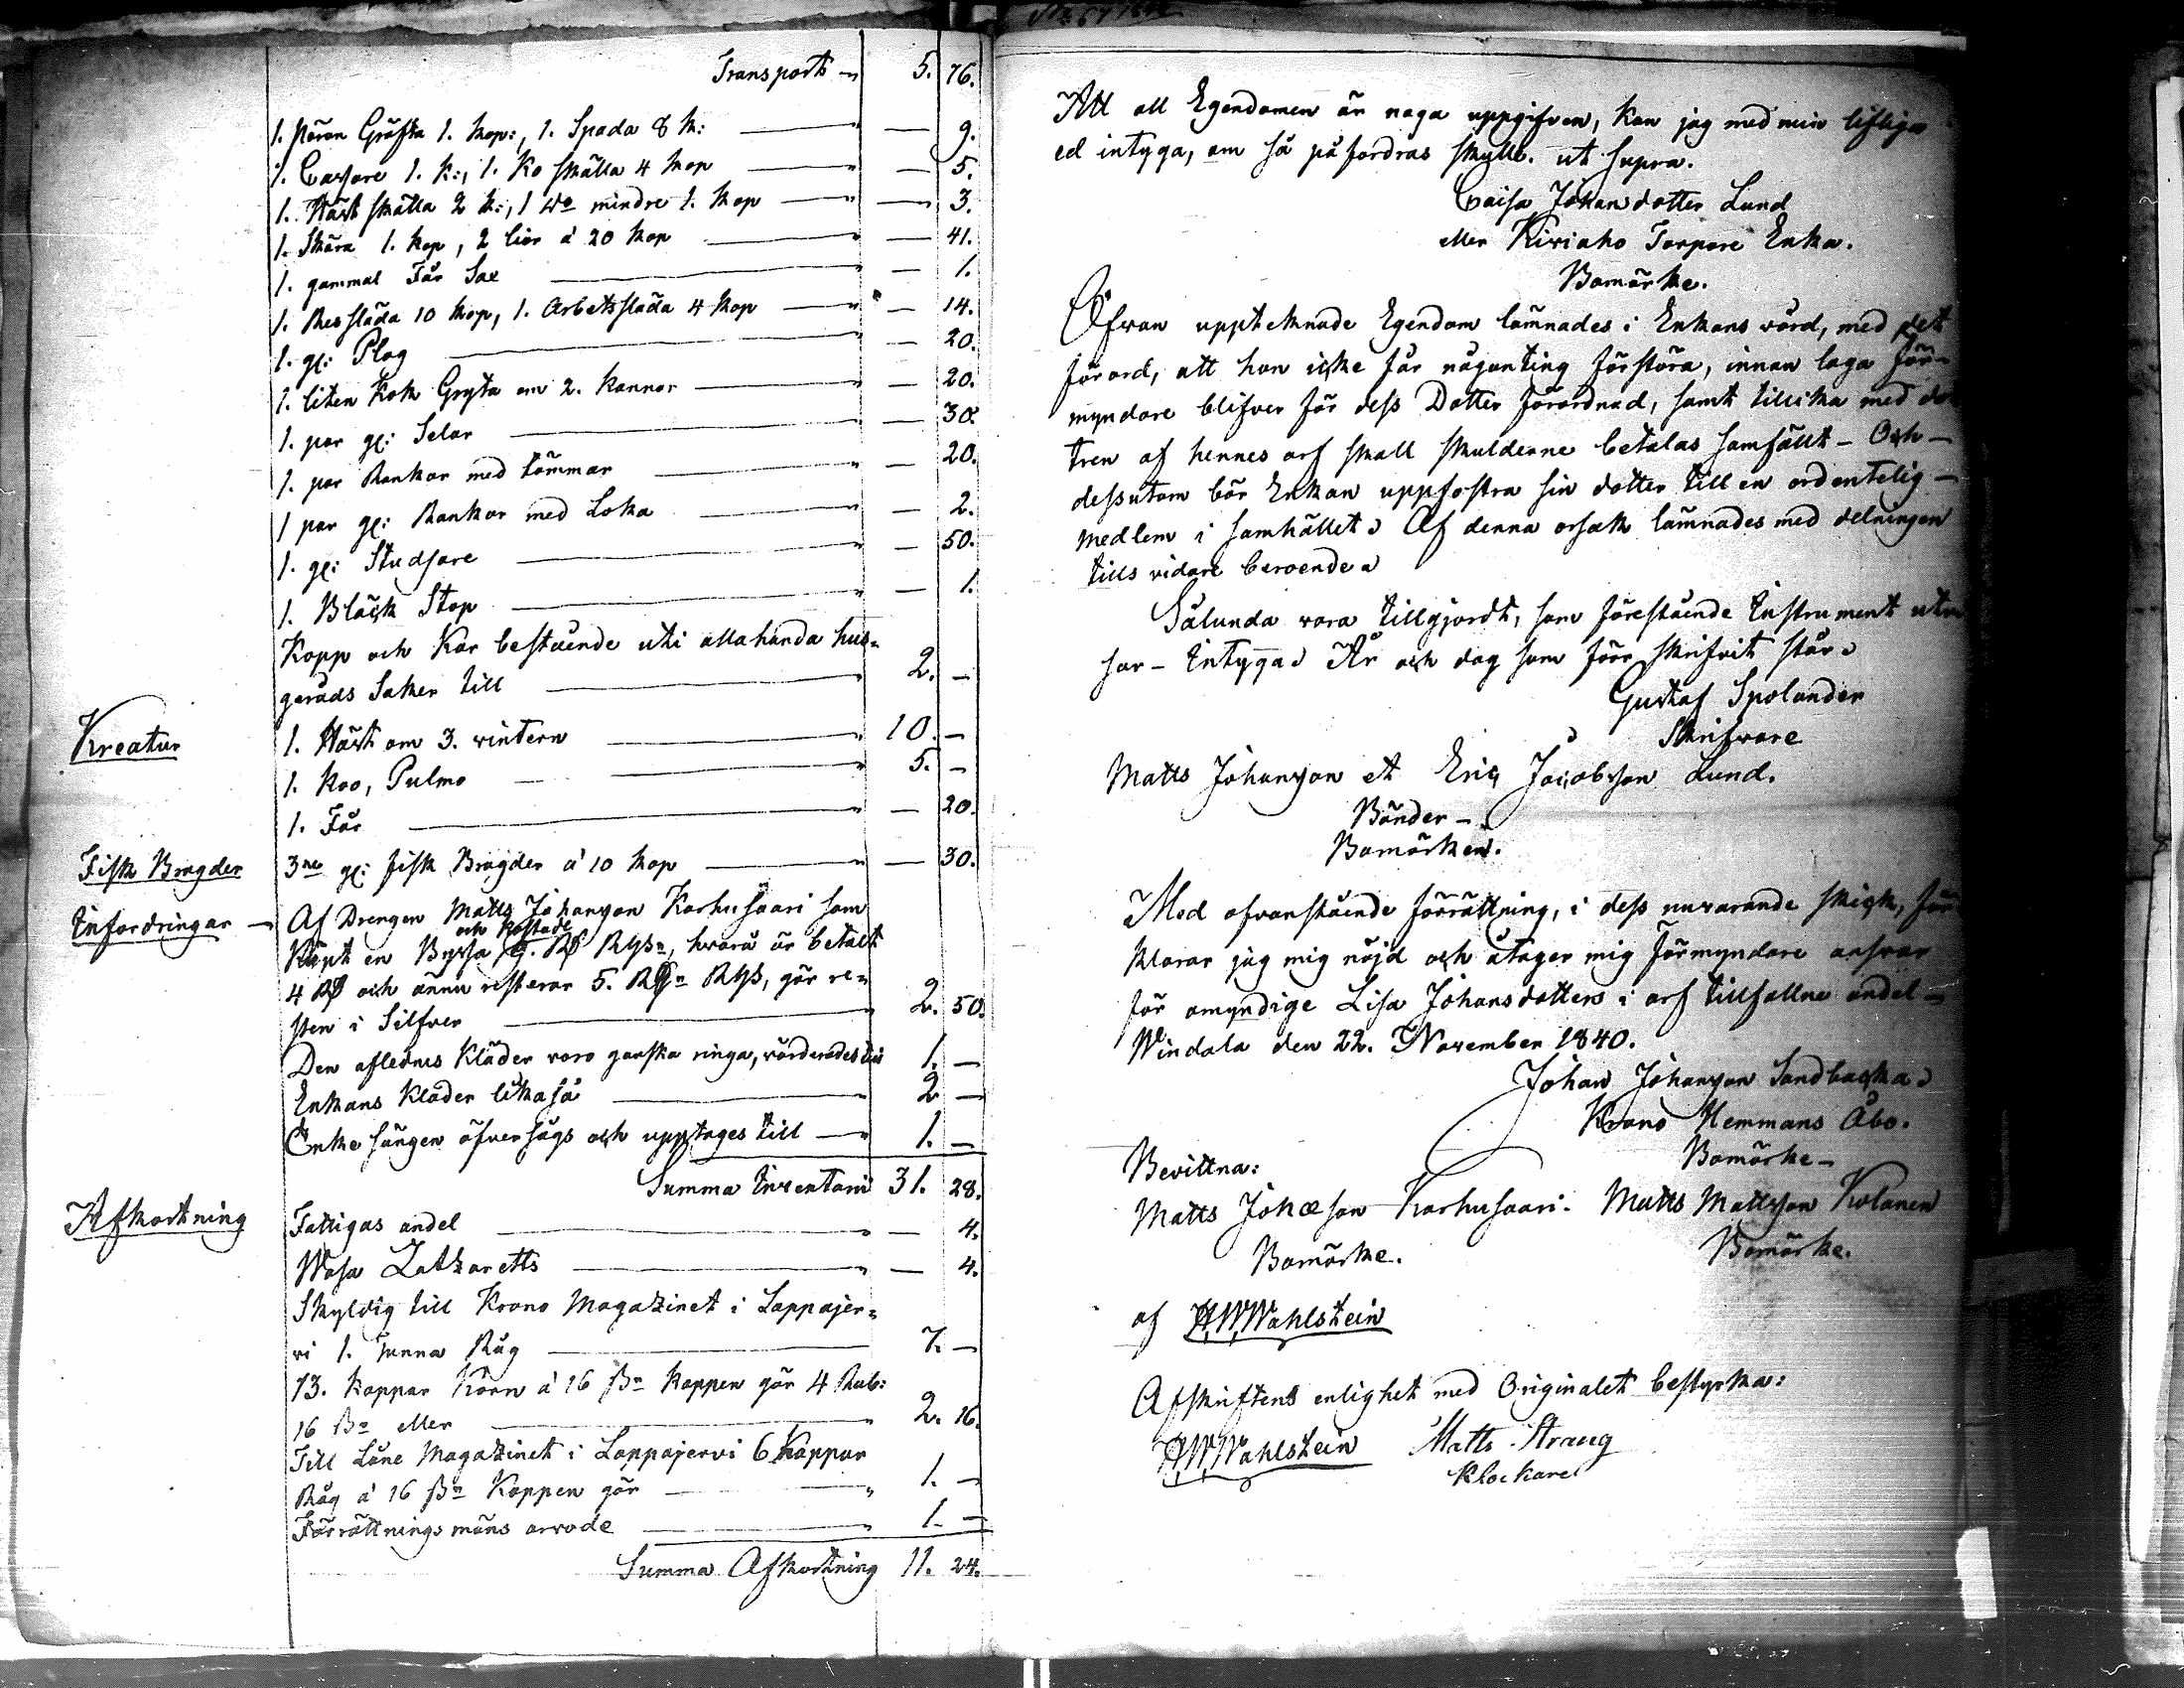 Transport 5. 76.
1. Päron Gräfta 1. kop:, 1. Spada 8 k: — 9.
1. 1. k:, 1. Ko skälla 4 kop — 5.
1. Häst skälla 2 k:, 1 do mindre 1. kop — 3.
1. Skära 1. kop, 2 liar á 20 kop — 41.
1. gammal Får Sax — 1.
1. Res släda 10 kop, 1. Arbetssläda 4 kop — 14.
1. gl: Plog — 20.
1. liten Kok Gryta om 2. kannor — 20.
1. par gl: Selar — 30.
1. par Rankor med tömmar — 20.
1 par gl: Rankor med Loka — 2.
1. gl: Studsare — 50.
1. Bläck Stop — 1.
Kopp och Kar bestående uti allahanda hus=
geråds Saker till 2. —
Kreatur
1. Häst om 3. vintern 10. —
1. Koo, Pulmo 5. —
1. Får — 20.
Fisk Bragder
3ne gl: fisk Bragder á 10 kop — 30.
Infordringar —
Af Drengen Matts Johansson Karhusaari som
och kostade
Köpt en Byssa 9. Rgs, hvarå är betalt
4 och ännu resterar 5. Rgs, gör re=
sten i Silfver 2. 50.
Den aflednes Kläder voro ganska ringa, värderades till 1. —
Enkans Kläder likaså 2 —
Enke sängen öfversågs och upptages till 1. —
Summa Inventarii 31. 28.
Afkortning
Fattigas andel — 4.
Wasa Latzaretts — 4.
Skyldig till Krono Magazinet i Lappajer=
vi 1. Tunna Råg 7. —
13. Kappar Korn á 16 Kappen gör 4 Rub:
16 eller 2. 16.
Till Låne Magazinet i Lappajervi 6 Kappar
Råg á 16 Kappen gör 1. —
Förrättnings mäns arvode 1. —
Summa Afkortning 11. 24.
Att all Egendomen är noga uppgifven, kan jag med min lifliga
ed intyga, om så påfordras skulle. ut supra.
Caisa Johansdotter Lund
eller Kiviaho Torpare Enka.
Bomärke.
Ofvan upptecknade Egendom lämnades i Enkans vård, med det
förord, att hon icke får någonting förstöra, innan laga för-
myndare blifver för dess Dotter förordnad, samt tillika med dot
tren af hennes arf skall skulderne betalas samfällt – Och –
dessutom bör Enkan uppfostra sin dotter till en ordentelig –
medlem i samhället. Af denna orsak lämnades med delningen
tills vidare beroende.
Sålunda vara tillgjordt, som förestående Instrument utvi
sar – Intygas År och dag som förr skrifvit står.
Gustaf Spolander
Skrifvare
Matts Johansson et Eric Jacobsson Lund.
Bönder –
Bomärken.
Med ofvanstående förrättning, i dess nuvarande skick, för
klarar jag mig nöjd och åtager mig Förmyndare ansvar
för omyndige Lisa Johansdotters i arf tillfallne andel –
Windala den 22. November 1840.
Johan Johansson Sandbacka
Krono Hemmans Åbo.
Bomärke –
Bevittna:
Matts Johansson Karhusaari. Matts Mattsson Kolanen
Bomärke. Bomärke.
af AWWahlstein
Afskriftens enlighet med Originalet bestyrka:
AWWahlstein Matts Strang
Klockare